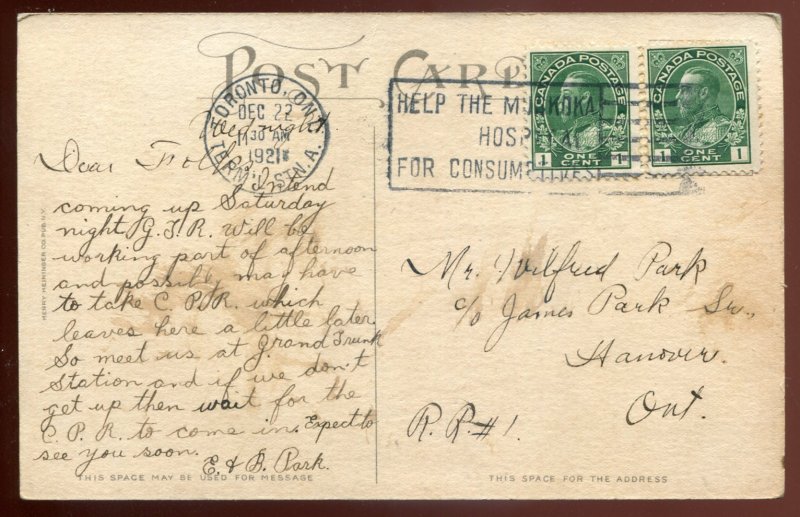 POST CARD
TORONTO, ONT.
DEC 22
11 30 AM
1921
TERM. STN. A.
HELP THE MUSKOKA
HOSPITAL
FOR CONSUMPTIVES
CANADA POSTAGE
1 ONE CENT 1
CANADA POSTAGE
1 ONE CENT 1
Wed. night.
Dear Folks: Intend
coming up Saturday
night. G.T.R. will be
working part of afternoon
and possibly may have
to take C.P.R. which
leaves here a little later.
So meet us at Grand Trunk
Station and if we don't
get up then wait for the
C.P.R. to come in. Expect to
see you soon.
E. & B. Park.
THIS SPACE MAY BE USED FOR MESSAGE
HENRY HEININGER CO. PUB. N.Y.
Mr. Wilfred Park
c/o James Park Sr.,
Hanover.
Ont.
R.R.#1.
THIS SPACE FOR THE ADDRESS